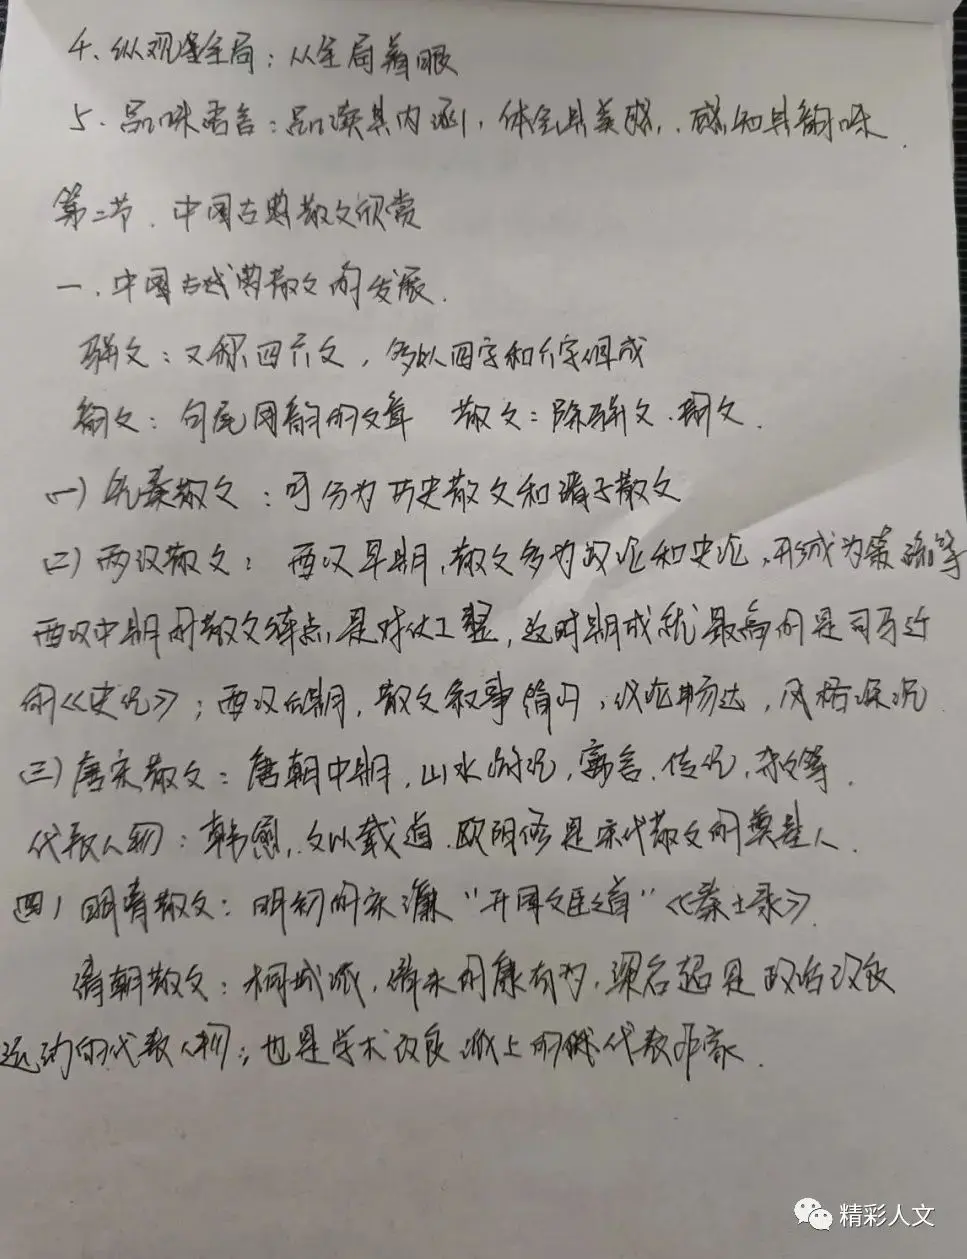 4、纵观全局：从全局着眼
5、品味语言：品读其内涵，体会其美感，感知其韵味.
第二节.中国古典散文欣赏
一.中国古典散文的发展.
骈文：又称四六文，多以四字和六字组成
韵文：句尾用韵的文章 散文：除骈文.韵文.
(一)先秦散文：可分为历史散文和诸子散文
(二)两汉散文：西汉早期，散文多为政论和史论，形成为策 等
西汉中期的散文特点是对仗工整，这时期成就最高的是司马迁
的《史记》；西汉后期，散文叙事简明，议论畅达，风格深沉
(三)唐宋散文：唐朝中期，山水游记，寓言.传记，杂文等.
代表人物：韩愈，文以载道.欧阳修是宋代散文的奠基人.
(四)明清散文：明初的宋濂"开国文臣之首"《秦士录》
清朝散文：桐城派，清末的康有为，梁启超是政治改良
运动的代表人物；也是学术改良派上的代表作家.
精彩人文